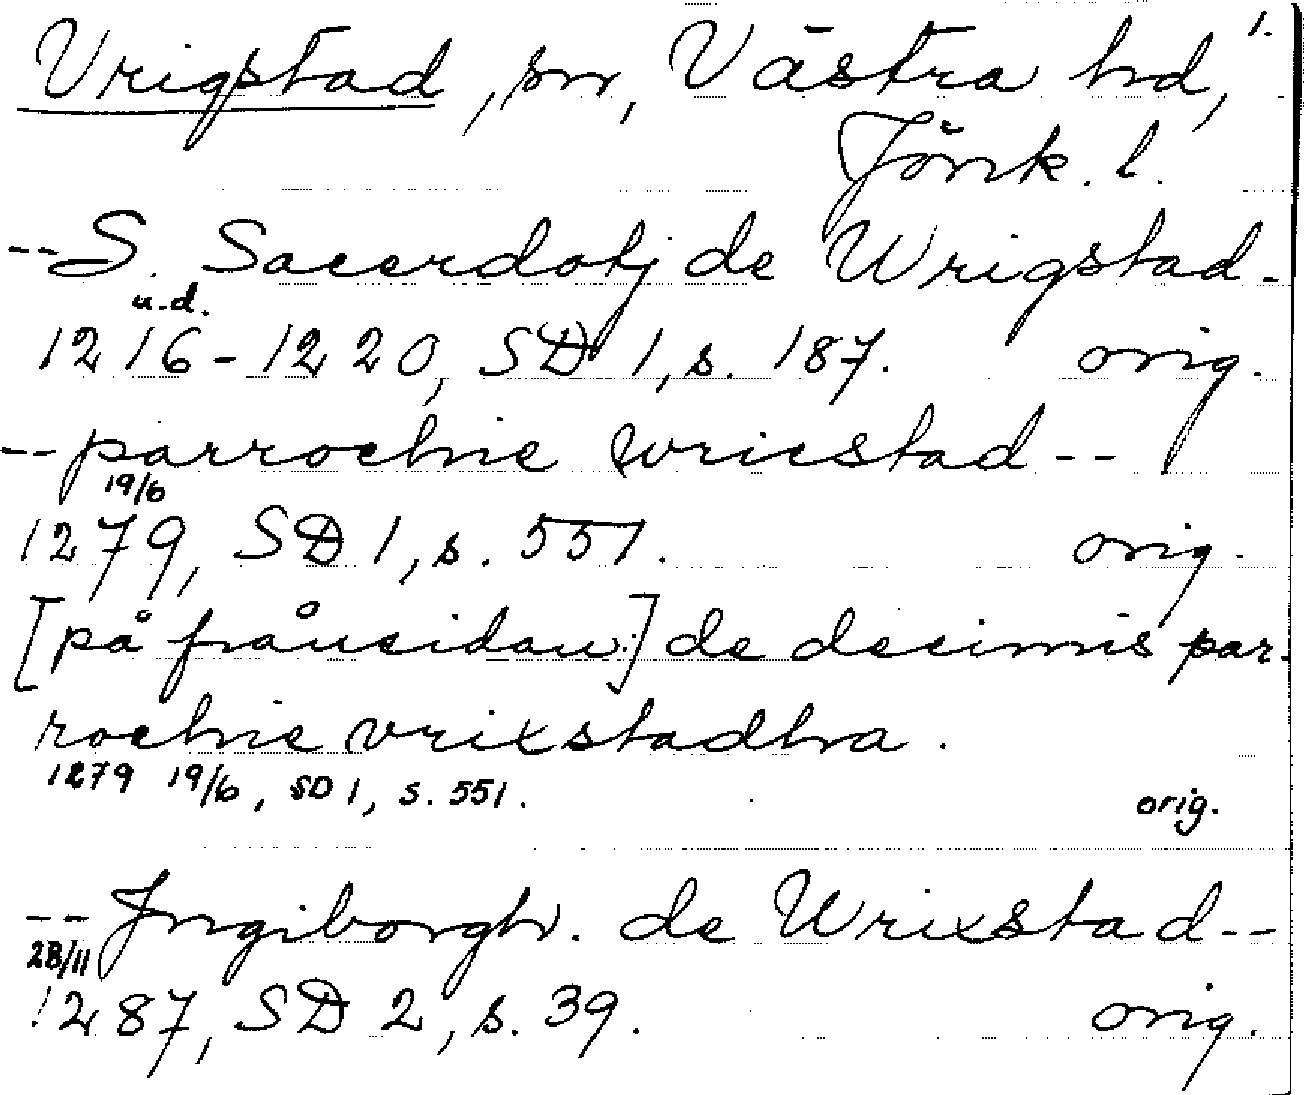 Vrigstad, sn, Västra hd, 1.
Jönk. l.
--S. Sacerdotj de Wrigstad-
u.d.
1216-1220, SD 1, s. 187. orig.
--parrochie wricstad--
19/6
1279, SD 1, s. 551. orig.
[på frånsidan:] de decimis par-
rochie vrixstadha.
1279 19/6, SD 1, s. 551. orig.
--Ingiborgh. de Wrixstad--
28/11
1287, SD 2, s. 39. orig.